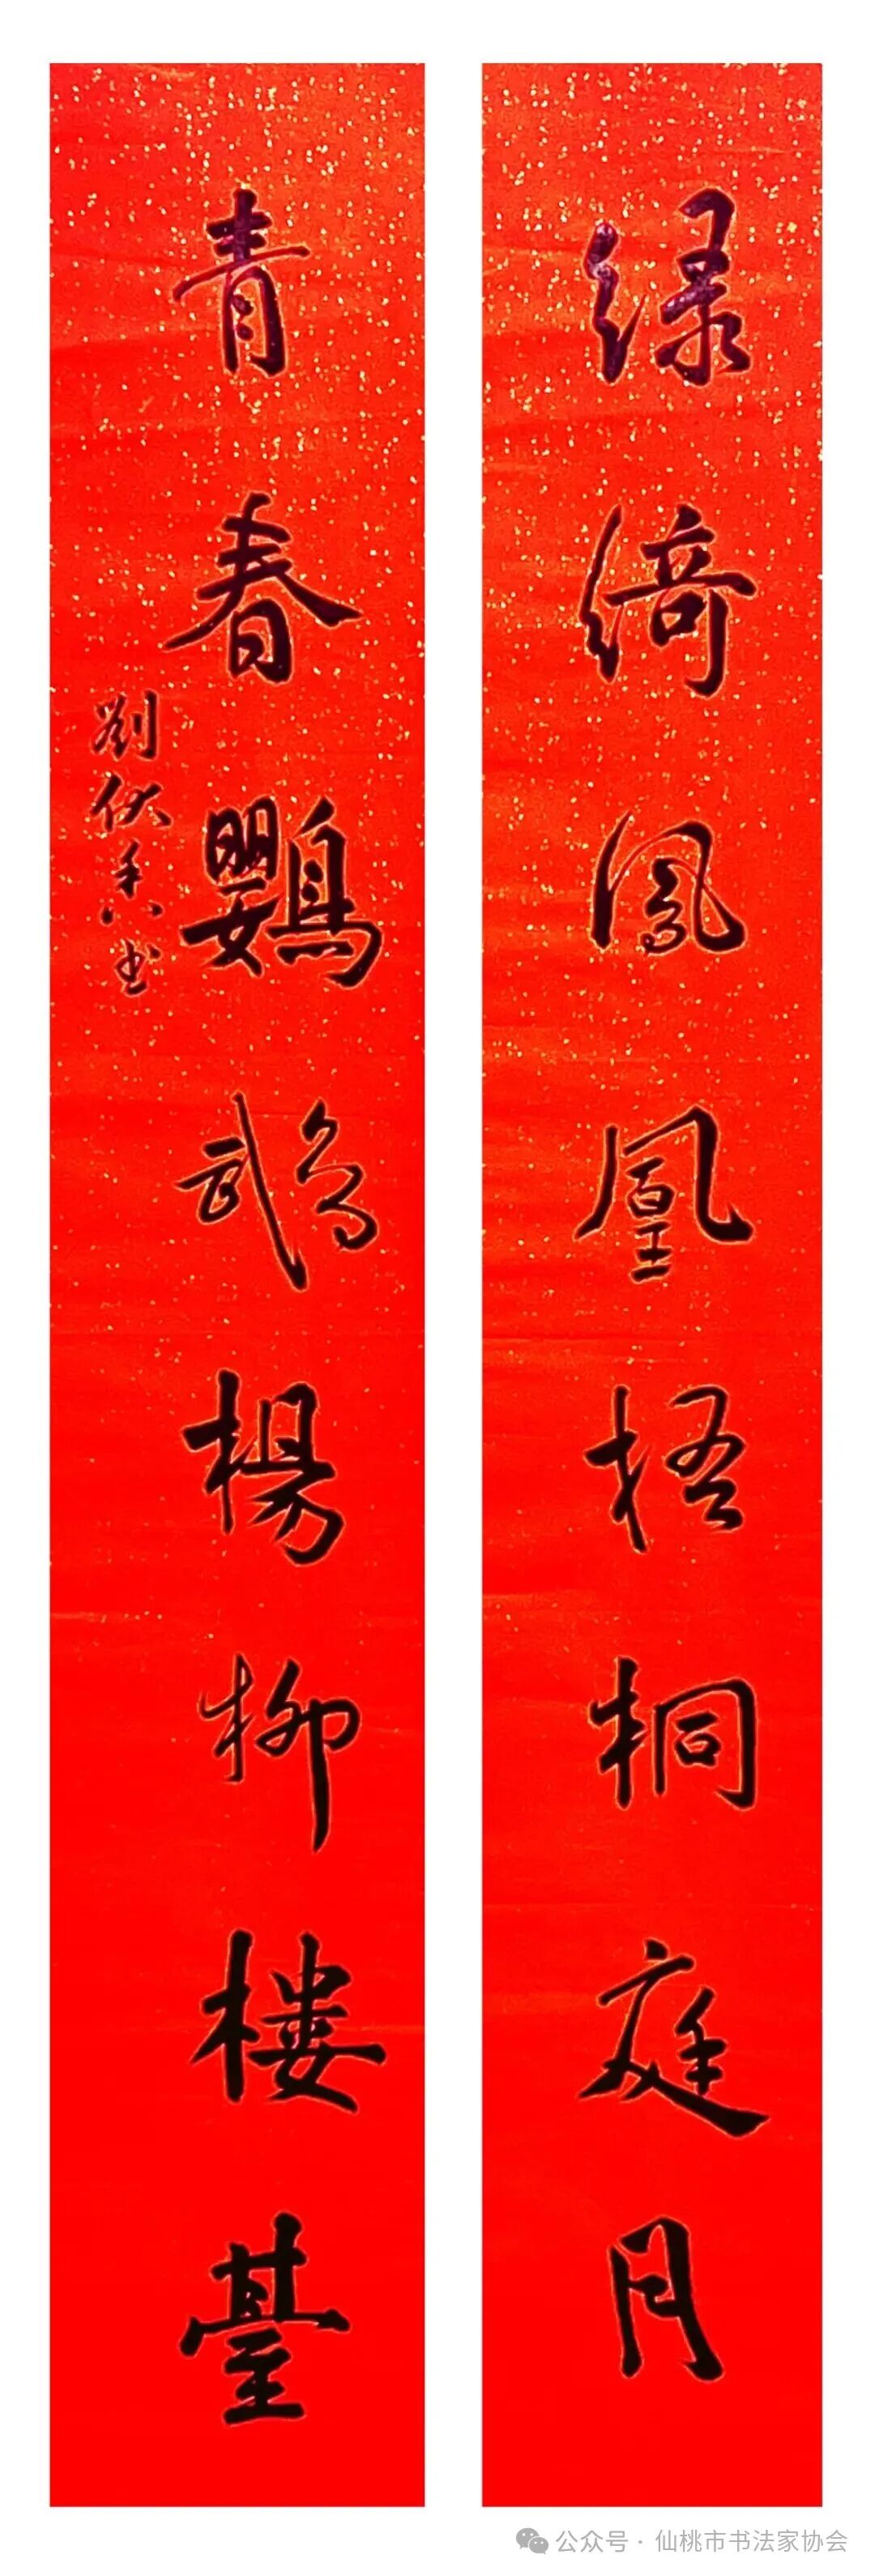 绿绮凤凰梧桐庭月
青春鹦鹉杨柳楼臺
公众号 · 仙桃市书法家协会